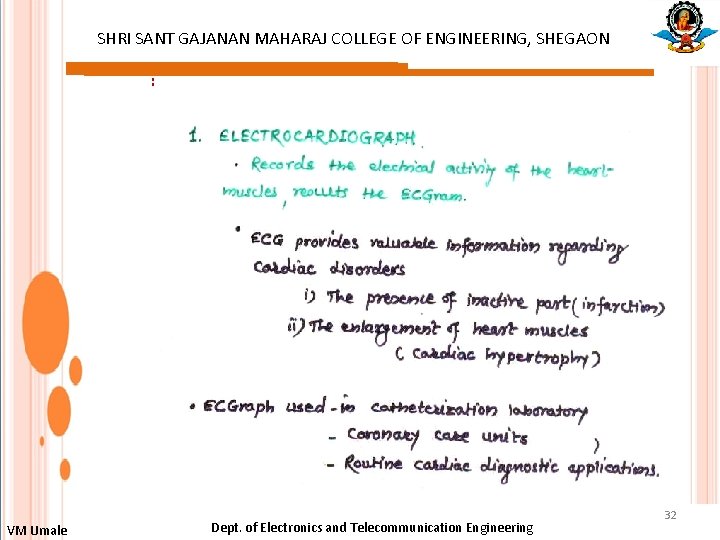 SHRI SANT GAJANAN MAHARAJ COLLEGE OF ENGINEERING, SHEGAON
:
1. ELECTROCARDIOGRAPH.
• Records the electrical activity of the heart-
muscles, results the ECGram.
• ECG provides valuable information regarding
Cardiac disorders
i) The presence of inactive part (infarction)
ii) The enlargement of heart muscles
(Cardiac hypertrophy)
• ECGraph used - in catheterization laboratory
- Coronary care units )
- Routine cardiac diagnostic applications.
32
VM Umale
Dept. of Electronics and Telecommunication Engineering